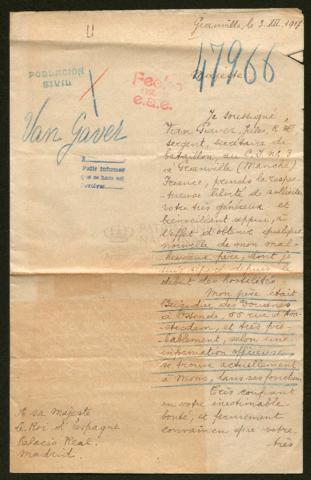 Granville, le 3. III. 1917
47966
POBLACIÓN
CIVIL
Fecho
e.a.e.
Majesté
Van Gaver
Je soussigné,
Van Gaver, Jules,
sergent, secrétaire de
bataillon, au C. I. n° 7
à Granville (Manche)
France, prends la respec-
tueuse liberté de solliciter
votre très généreux et
bienveillant appui, à
l'effet d'obtenir quelque
nouvelle de mon mal-
heureux père, dont je
suis séparé depuis le
début des hostilités.
Pedir informes
Mon père était
des Douanes
à Ostende 55 rue d'Am-
sterdam, et très pro-
bablement, selon une
information officieuse,
se trouve actuellement
à Mons, dans ses fonctions.
Très confiant
en votre inestimable
bonté, et fermement
convaincu que votre
très
A sa Majesté
le Roi d'Espagne
Palacio Real.
Madrid.